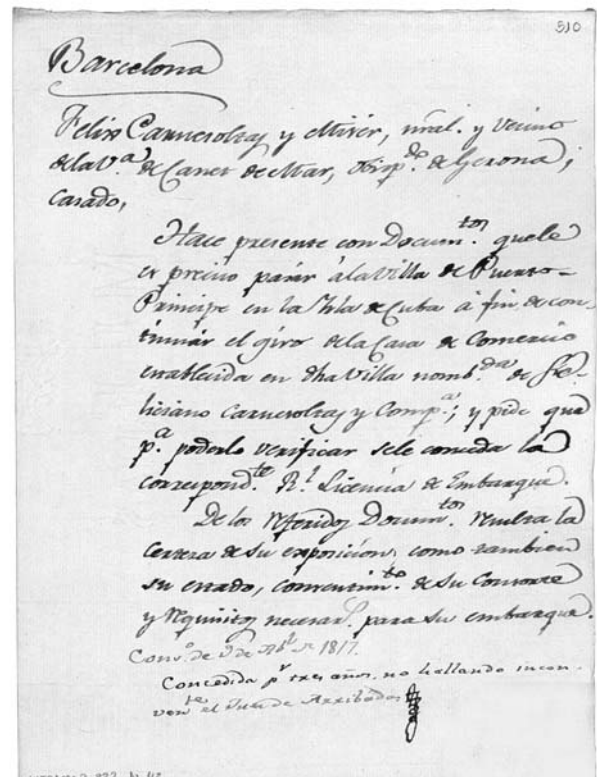 510
Barcelona
Felix Carnesoltas y Mirer, nral. y Vecino
dela V.ª de Canet de Mar, obisp.do de Gerona,
Casado,
Hace presente con Docum.tos quele
es preciso pasar àla Villa de Puerto-
Principe en la Isla de Cuba à fin de con-
tinuar el giro dela Casa de Comercio
establecida en dha Villa nomb.da de Fe-
liciano Carnesoltas y Comp.ª; y pide que
p.ª poderlo verificar sele conceda la
correspond.te R.l Licencia de Embarque.
Delos referidos Docum.tos resulta la
Certeza de su exposicion, como tambien
su estado, consentim.to de su Consorte
y requisitos necesar.s para su embarque.
de 1817.
Concedida p.r tres años, no hallando incon-
ven.te el Juez de Arribadas